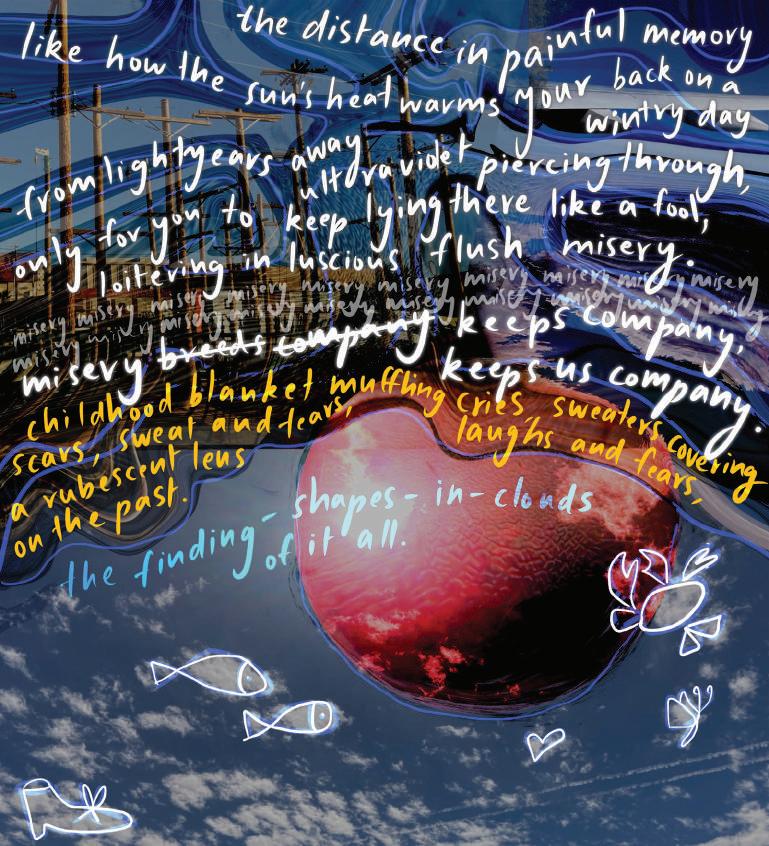 the distance in painful memory
like how the sun's heat warms your back on a
wintry day
from lightyears away
ultraviolet piercing through,
only for you to keep lying there like a fool,
loitering in luscious flush misery.
misery misery misery misery misery misery misery misery misery misery misery
misery misery misery misery misery misery misery misery misery misery misery
misery breeds company keeps company,
keeps us company.
childhood blanket muffling cries, sweaters covering
scars, sweat and tears, laughs and fears,
a rubescent lens
on the past.
the finding-shapes-in-clouds
of it all.